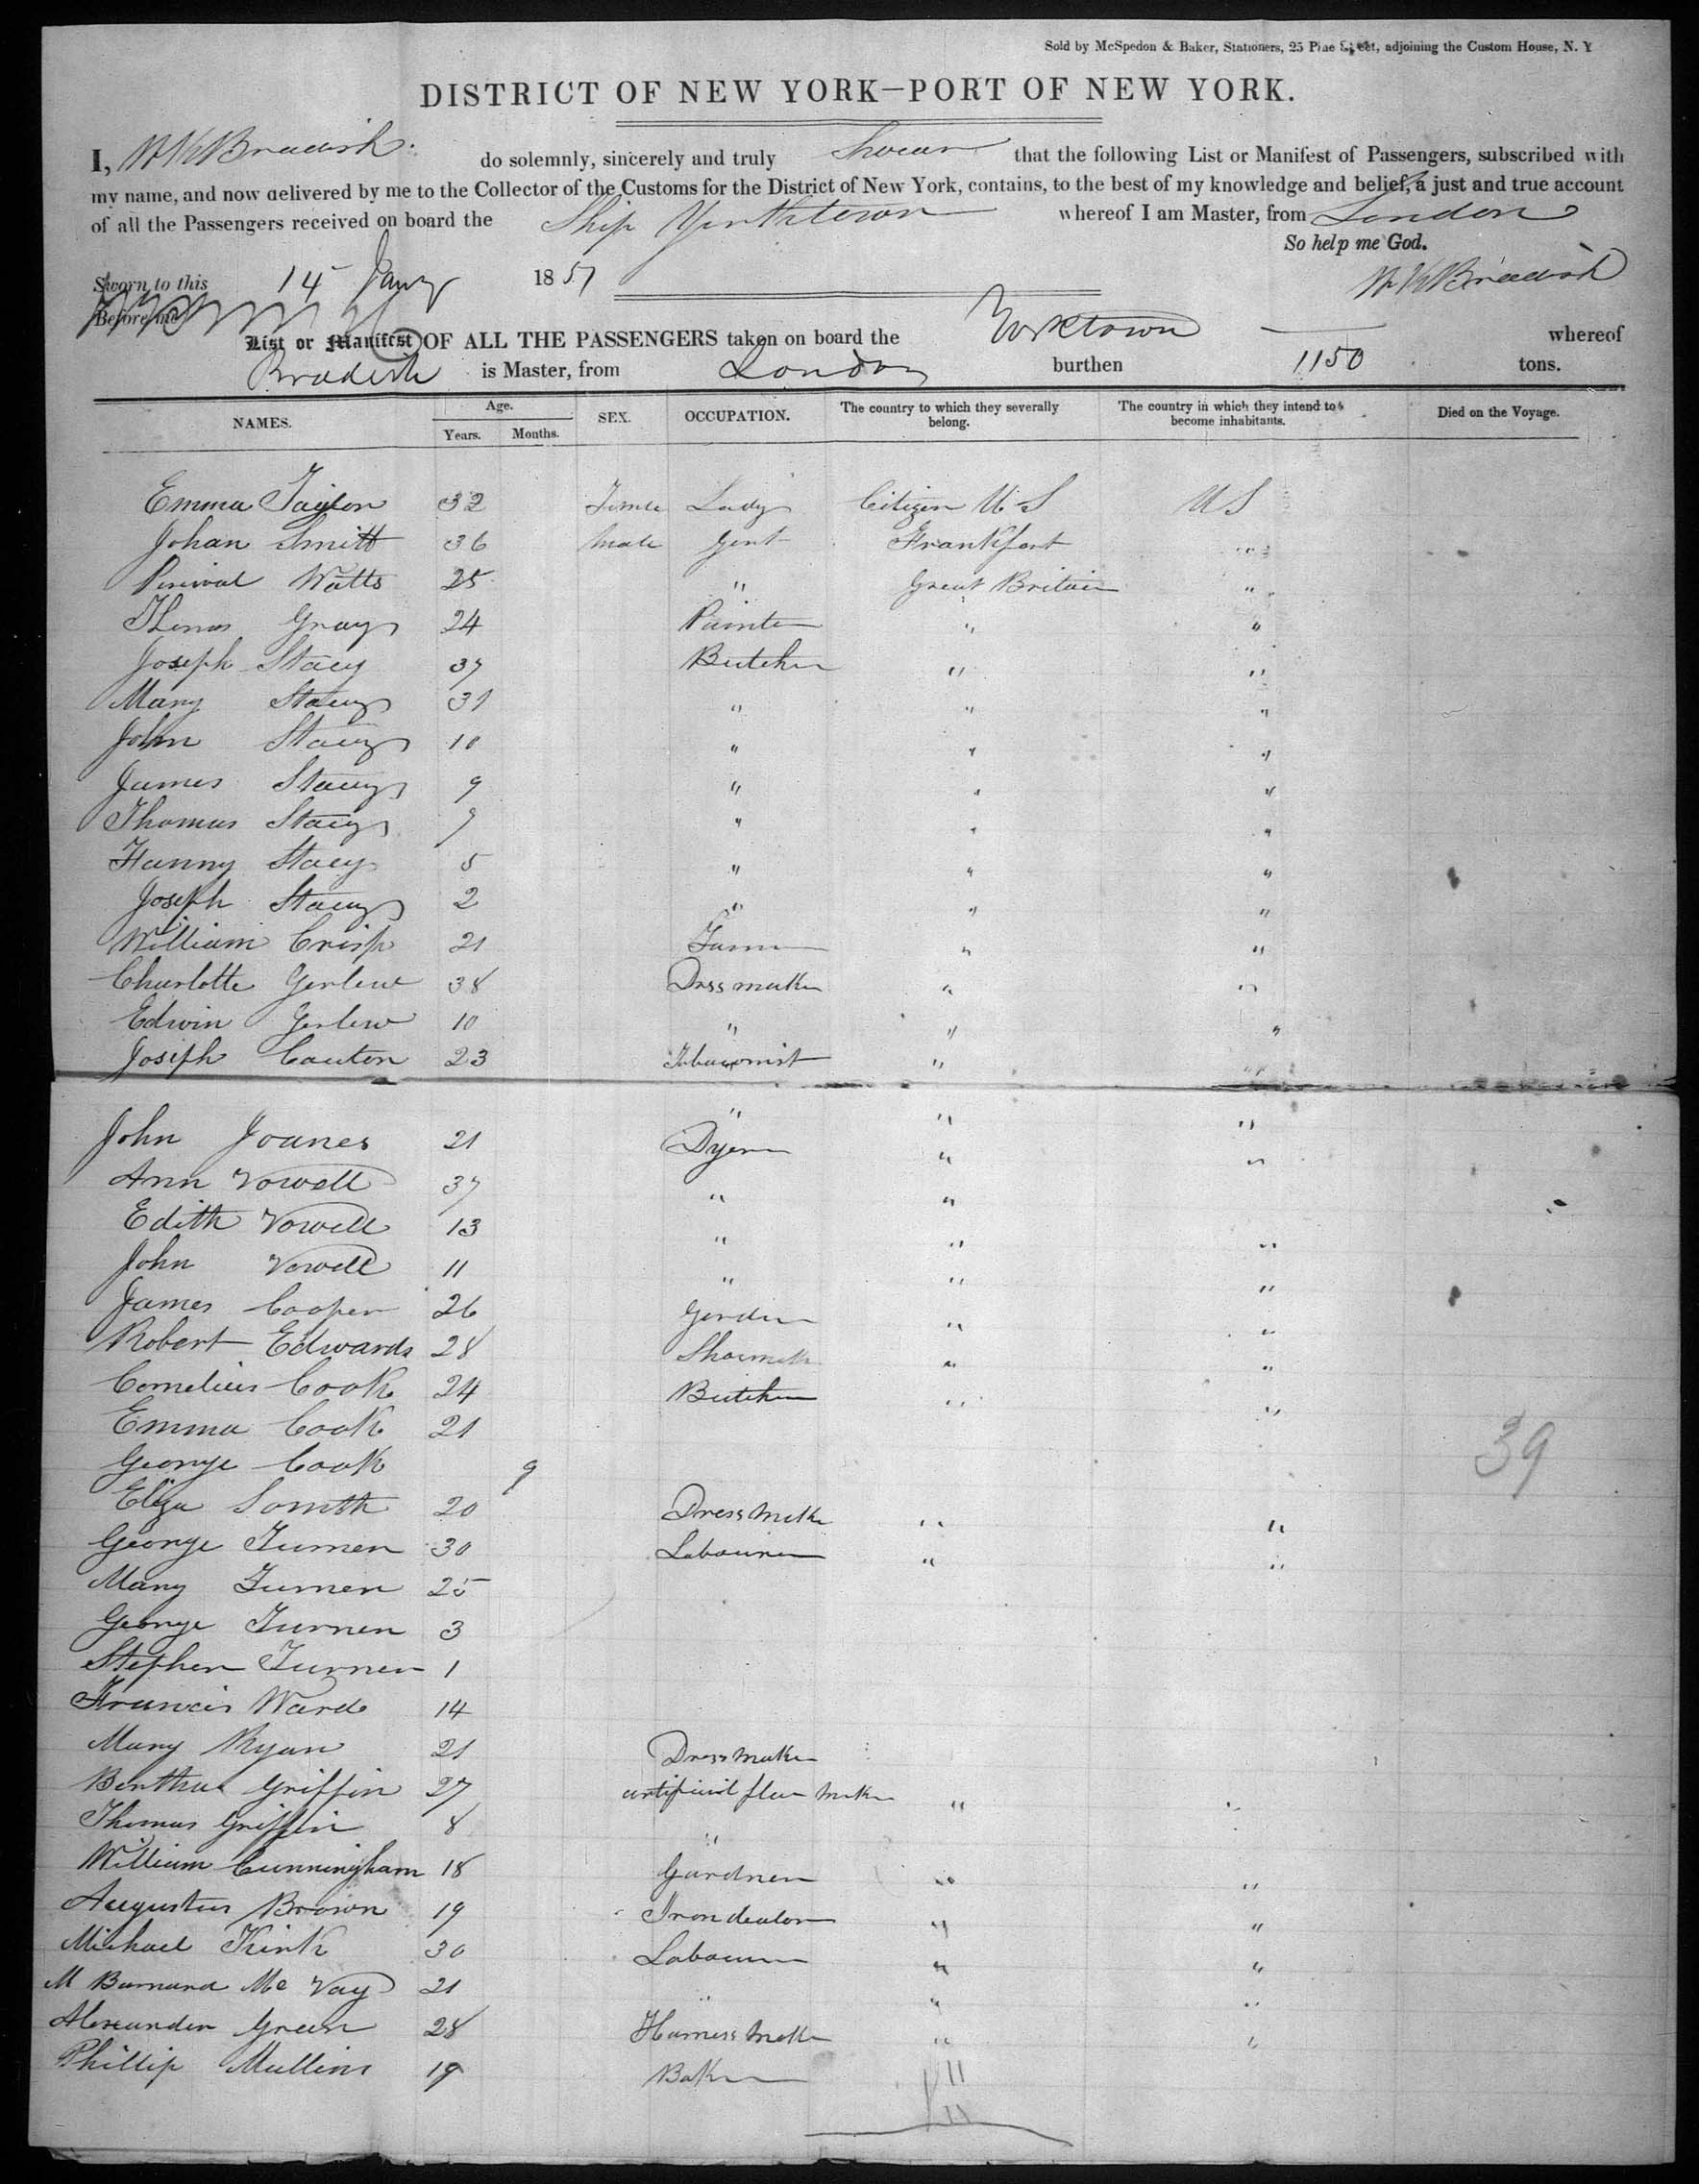 Sold by McSpedon & Baker, Stationers, 25 Pine Street, adjoining the Custom House, N. Y
DISTRICT OF NEW YORK—PORT OF NEW YORK.
I, W K Bradish. do solemnly, sincerely and truly Swear that the following List or Manifest of Passengers, subscribed with
my name, and now delivered by me to the Collector of the Customs for the District of New York, contains, to the best of my knowledge and belief, a just and true account
of all the Passengers received on board the Ship Yorktown whereof I am Master, from London
So help me God.
Sworn to this 14 Jany 1857 W K Bradish
Before me
List or Manifest OF ALL THE PASSENGERS taken on board the Yorktown whereof
Bradish is Master, from London burthen 1150 tons.
NAMES. Age. SEX. OCCUPATION. The country to which they severally belong. The country in which they intend to become inhabitants. Died on the Voyage.
Years. Months.
Emma Taylor 32 Female Lady Citizen U S U S
Johan Smitt 36 Male Gent Frankfort "
Percival Watts 25 " Great Britain "
Thomas Gray 24 Painter " "
Joseph Stacy 37 Butcher " "
Mary Stacy 31 " " "
John Stacy 10 " " "
James Stacy 9 " " "
Thomas Stacy 7 " " "
Fanny Stacy 5 " " "
Joseph Stacy 2 " " "
William Crisp 21 Farmer " "
Charlotte Gerlew 38 Dressmaker " "
Edwin Gerlew 10 " " "
Joseph Cauten 23 Tobaconist " "
" " "
John Joanes 21 Dyer " "
Ann Vowell 37 " "
Edith Vowell 13 " " "
John Vowell 11 " " "
James Cooper 26 Gardner " "
Robert Edwards 28 Shoemaker " "
Cornelius Cook 24 Butcher " "
Emma Cook 21
George Cook 9
39
Eliza Somth 20 Dress Maker " "
George Turner 30 Labourer " "
Mary Turner 25
George Turner 3
Stephen Turner 1
Francis Ward 14
Mary Ryan 21 Dress Maker
Berthua Griffin 27 artificial flower Maker " "
Thomas Griffin 8 "
William Cunningham 18 Gardner " "
Augustus Brown 19 Iron dealer " "
Michael Kink 30 Labourer " "
M Barnard Mc Vay 21 " " "
Alexander Green 28 Harness Maker " "
Phillip Mullins 19 Baker "
"